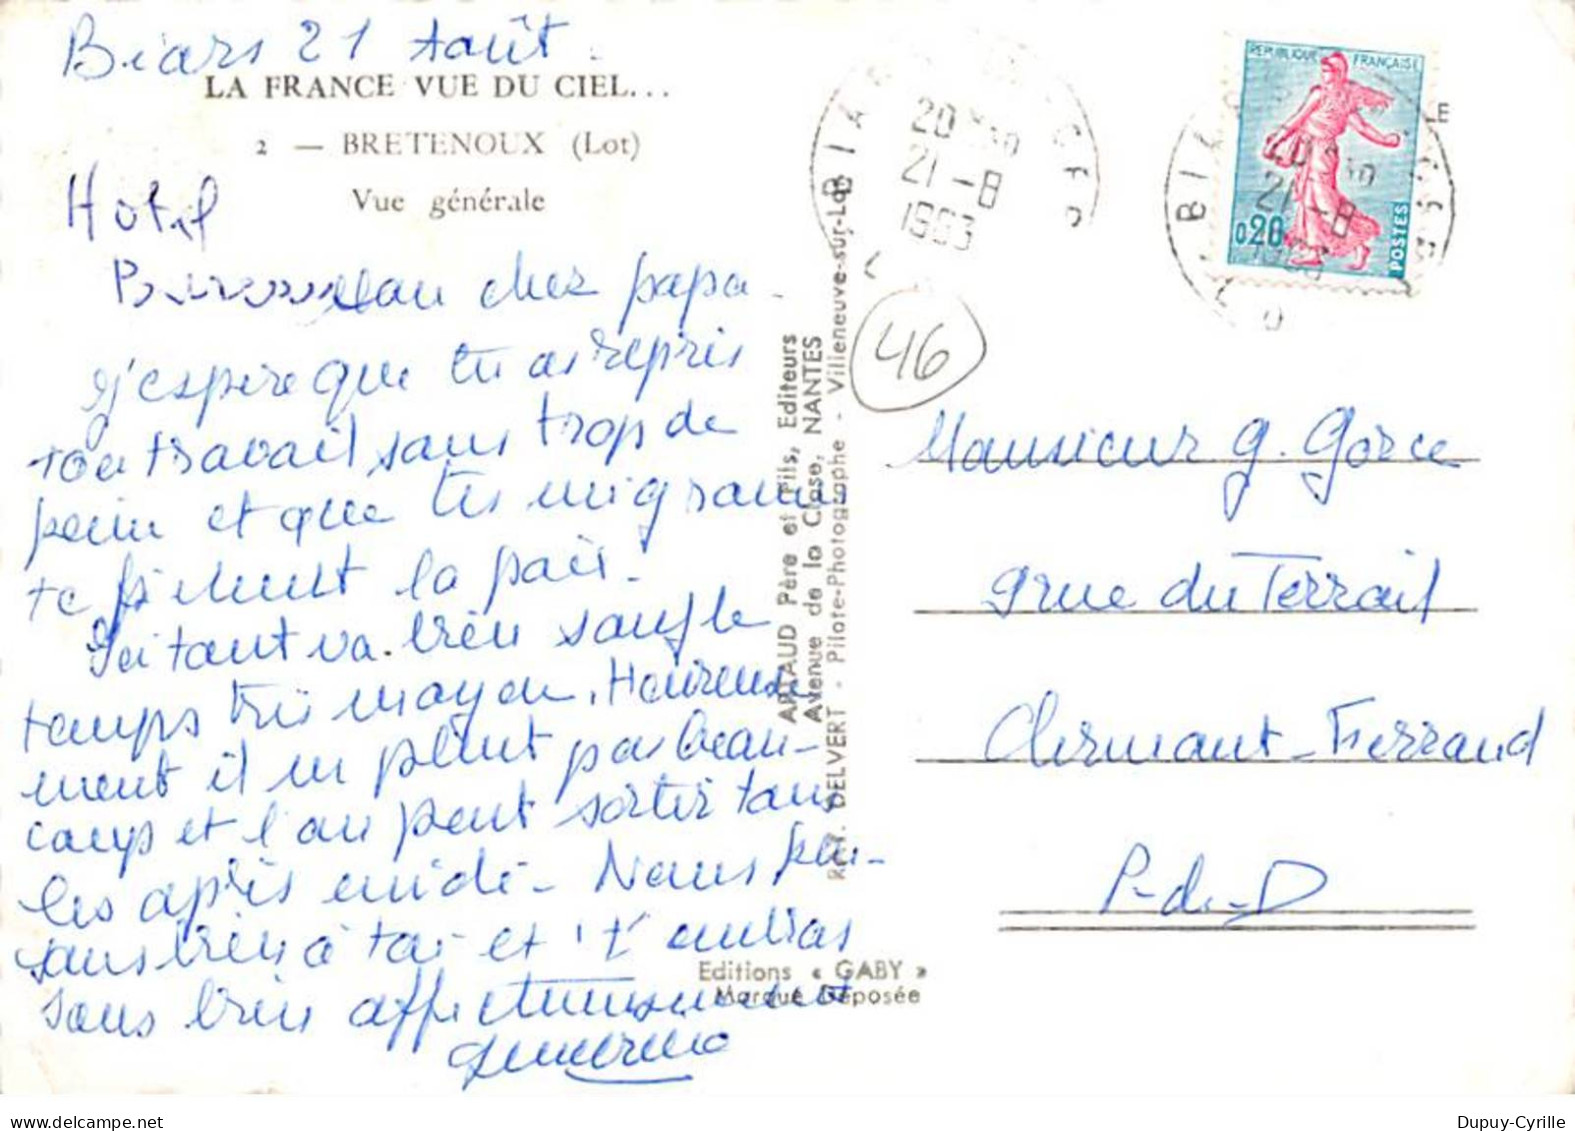 Biars 21 Août.
LA FRANCE VUE DU CIEL...
2 — BRETENOUX (Lot)
Vue générale
Hotel
chez papa -
J'espère que tu as repris
ton travail sans trop de
peine et que tes migraines
te fichent la paix.
Ici tout va bien sauf le
temps très moyen. Heureuse-
ment il ne pleut pas beau-
coup et l'on peut sortir tous
les après midi - Nous pen-
sons bien à toi et t'embras
sons bien affectueusement
ARTAUD Père et Fils, Editeurs
Avenue de la Close, NANTES
Réf. DELVERT - Pilote-Photographe - Villeneuve-sur-Lot
Editions « GABY »
Marque Déposée
BIARS
20 30
21-8
1963
46
REPUBLIQUE FRANÇAISE
0,20
POSTES
BIARS
20 30
21-8
1963
LO
E
Monsieur G. Gorce
9 rue du Terrail
Clermont-Ferrand
P-de-D
Dupuy-Cyrille